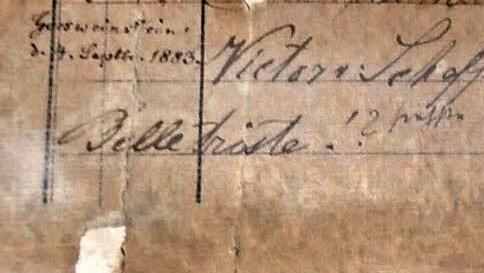 Goesweinstein:
d. 4. Septbr. 1883.
Victor v. Scheff
Belletriste. !?